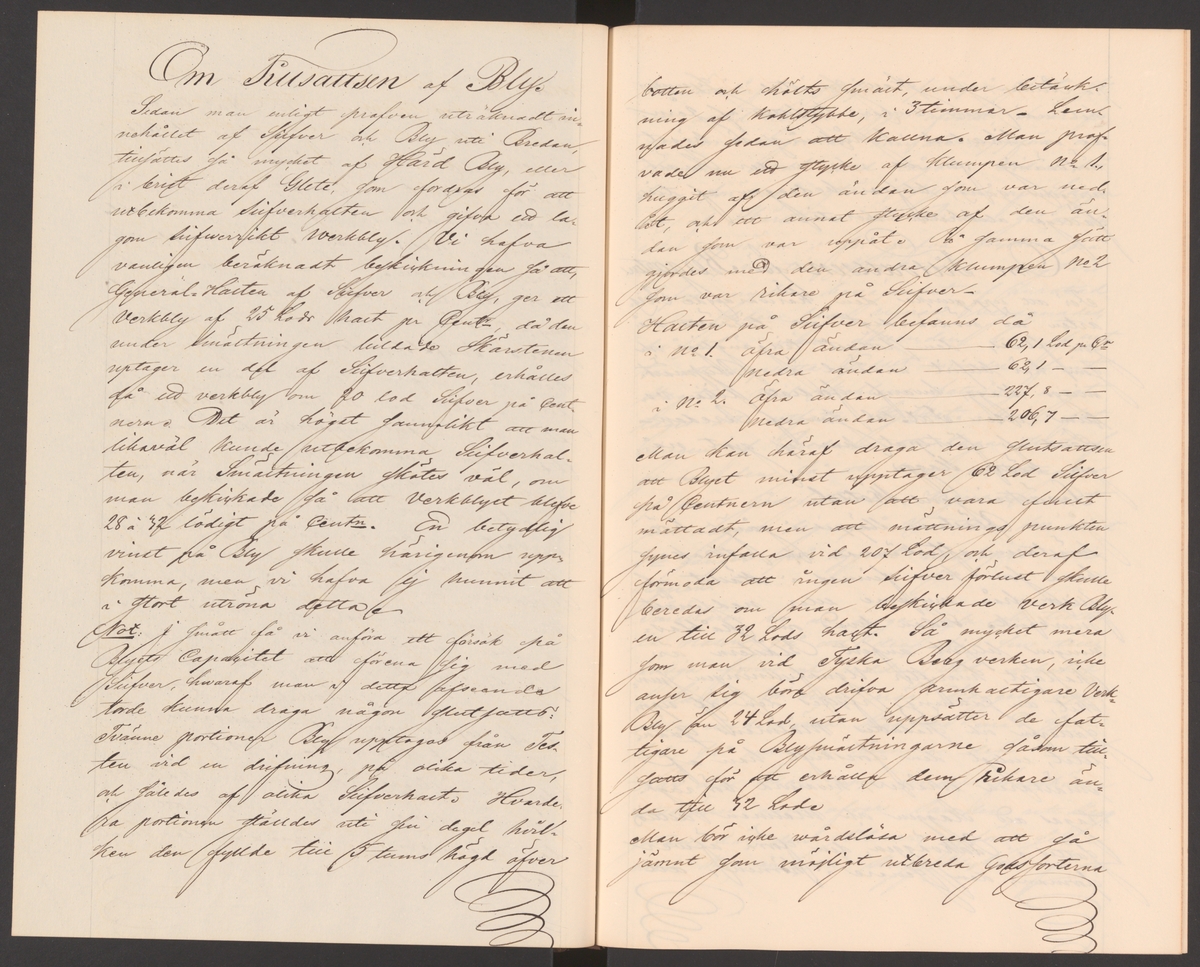 Om Tillsattsen af Bly.
Sedan man enligt profven uträknadt in-
nehållet af Silfver och Bly uti Bredan,
tillsättes så mycket af Härd Bly, eller
i brist deraf Glete, som fordras för att
utbekomma Silfverhalten och gifva ett la-
gom silfverrikt Verkbly. Vi hafva
vanligen beräknadt beskickningen så att
General-Halten af Silfver och Bly, ger ett
Verkbly af 25 Lods halt pr Centr, då den
under smältningen bildade Skärstenen
uptager en del af Silfverhalten, erhålles
få ett verkbly om 20 lod Silfver på Cent-
nern. Det är högst sannolikt att man
likaväl kunde utbekomma Silfverhal-
ten, när Smältningen skötes väl, om
man beskickade så att Verkblyet blefve
28 à 32 lödigt på Centn. En betydlig
vinst på Bly skulle härigenom upp-
komma, men vi hafva ej hunnit att
i stort utröna detta.
Not: I smått få vi anföra ett försök på
Blyets Capacitet att förena sig med
Silfver, hvaraf man i detta afseende
torde kunna draga någon slutsatts:
Tvänne portioner Bly upptagas från Tes-
ten vid en drifning, på olika tider,
och således af olika Silfverhalt. Hvarde-
ra portionen ställdes uti sin degel hvil-
ken den fyllde till 5 tums högd öfver
botten och hölts smält, under betäck-
ning af Kohlstybbe, i 3 timmar. Lem-
nades sedan att kallna. Man prof-
vade nu ett stycke af Klumpen No 1,
huggit af den ändan som var ned-
åt, och ett annat stycke af den än-
dan som var uppåt. På samma sätt
gjordes med den andra Klumpen No 2
som var rikare på Silfver.
Halten på Silfver befanns då
i No 1. öfra ändan 62,1 Lod pr Cr
nedra ändan 62,1 — —
i No 2. öfra ändan 227,8 — —
nedra ändan 206,7 — —
Man kan häraf draga den slutsattsen
att Blyet minst upptager 62 Lod Silfver
på Centnern utan att vara fullt
mättadt, men att mättnings punkten
synes infalla vid 207 Lod, och deraf
förmoda att ingen Silfver förlust skulle
beredas om man beskickade Verk Bly-
en till 32 Lods halt. Så mycket mera
som man vid Tyska Bergverken, icke
anser sig böra drifva armhaltigare Verk-
Bly än 24 Lod, utan uppsätter de fat-
tigare på Blysmältningarne såsom till-
satts för att erhålla dem rikare än-
da till 32 Lod.
Man bör icke wårdslösa med att så
jämnt som möjligt utbreda Godssorterna